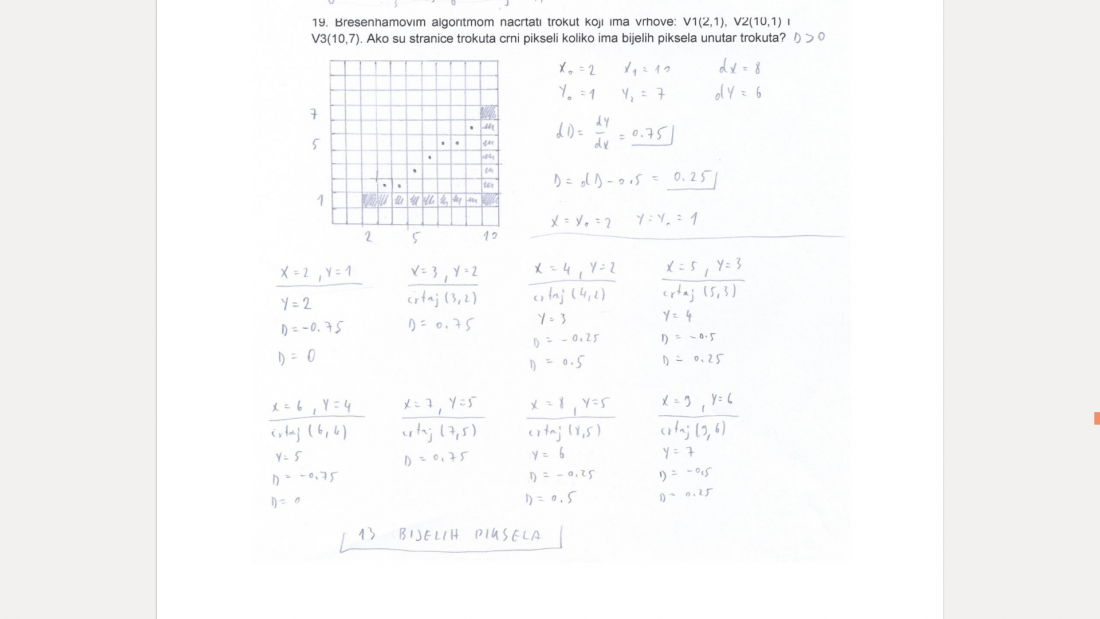 19. Bresenhamovim algoritmom nacrtati trokut koji ima vrhove: V1(2,1), V2(10,1) i
V3(10,7). Ako su stranice trokuta crni pikseli koliko ima bijelih piksela unutar trokuta? D > 0
7
5
1
2 5 10
X₀ = 2 X₁ = 10 dX = 8
Y₀ = 1 Y₁ = 7 dY = 6
dD = dY/dX = 0.75
D = dD - 0.5 = 0.25
X = X₀ = 2 Y = Y₀ = 1
X = 2, Y = 1
Y = 2
D = -0.75
D = 0
X = 3, Y = 2
crtaj (3,2)
D = 0.75
X = 4, Y = 2
crtaj (4,2)
Y = 3
D = -0.25
D = 0.5
X = 5, Y = 3
crtaj (5,3)
Y = 4
D = -0.5
D = 0.25
X = 6, Y = 4
crtaj (6,4)
Y = 5
D = -0.75
D = 0
X = 7, Y = 5
crtaj (7,5)
D = 0.75
X = 8, Y = 5
crtaj (8,5)
Y = 6
D = -0.25
D = 0.5
X = 9, Y = 6
crtaj (9,6)
Y = 7
D = -0.5
D = 0.25
13 BIJELIH PIKSELA